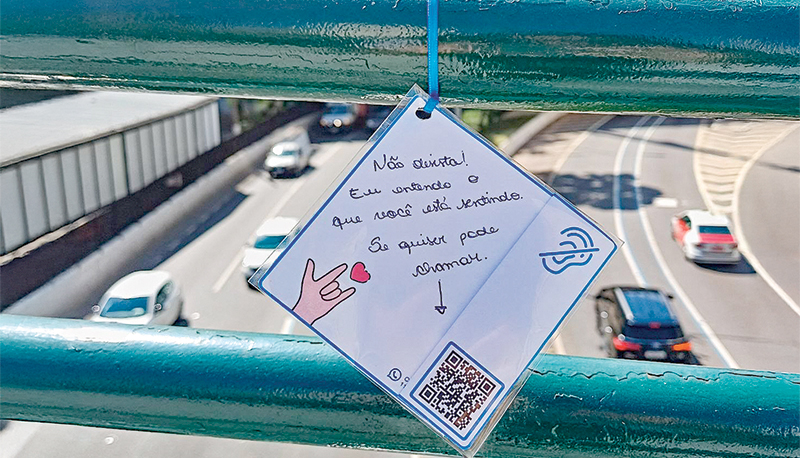 Não desista!
Eu entendo o
que você está sentindo.
Se quiser pode
chamar.